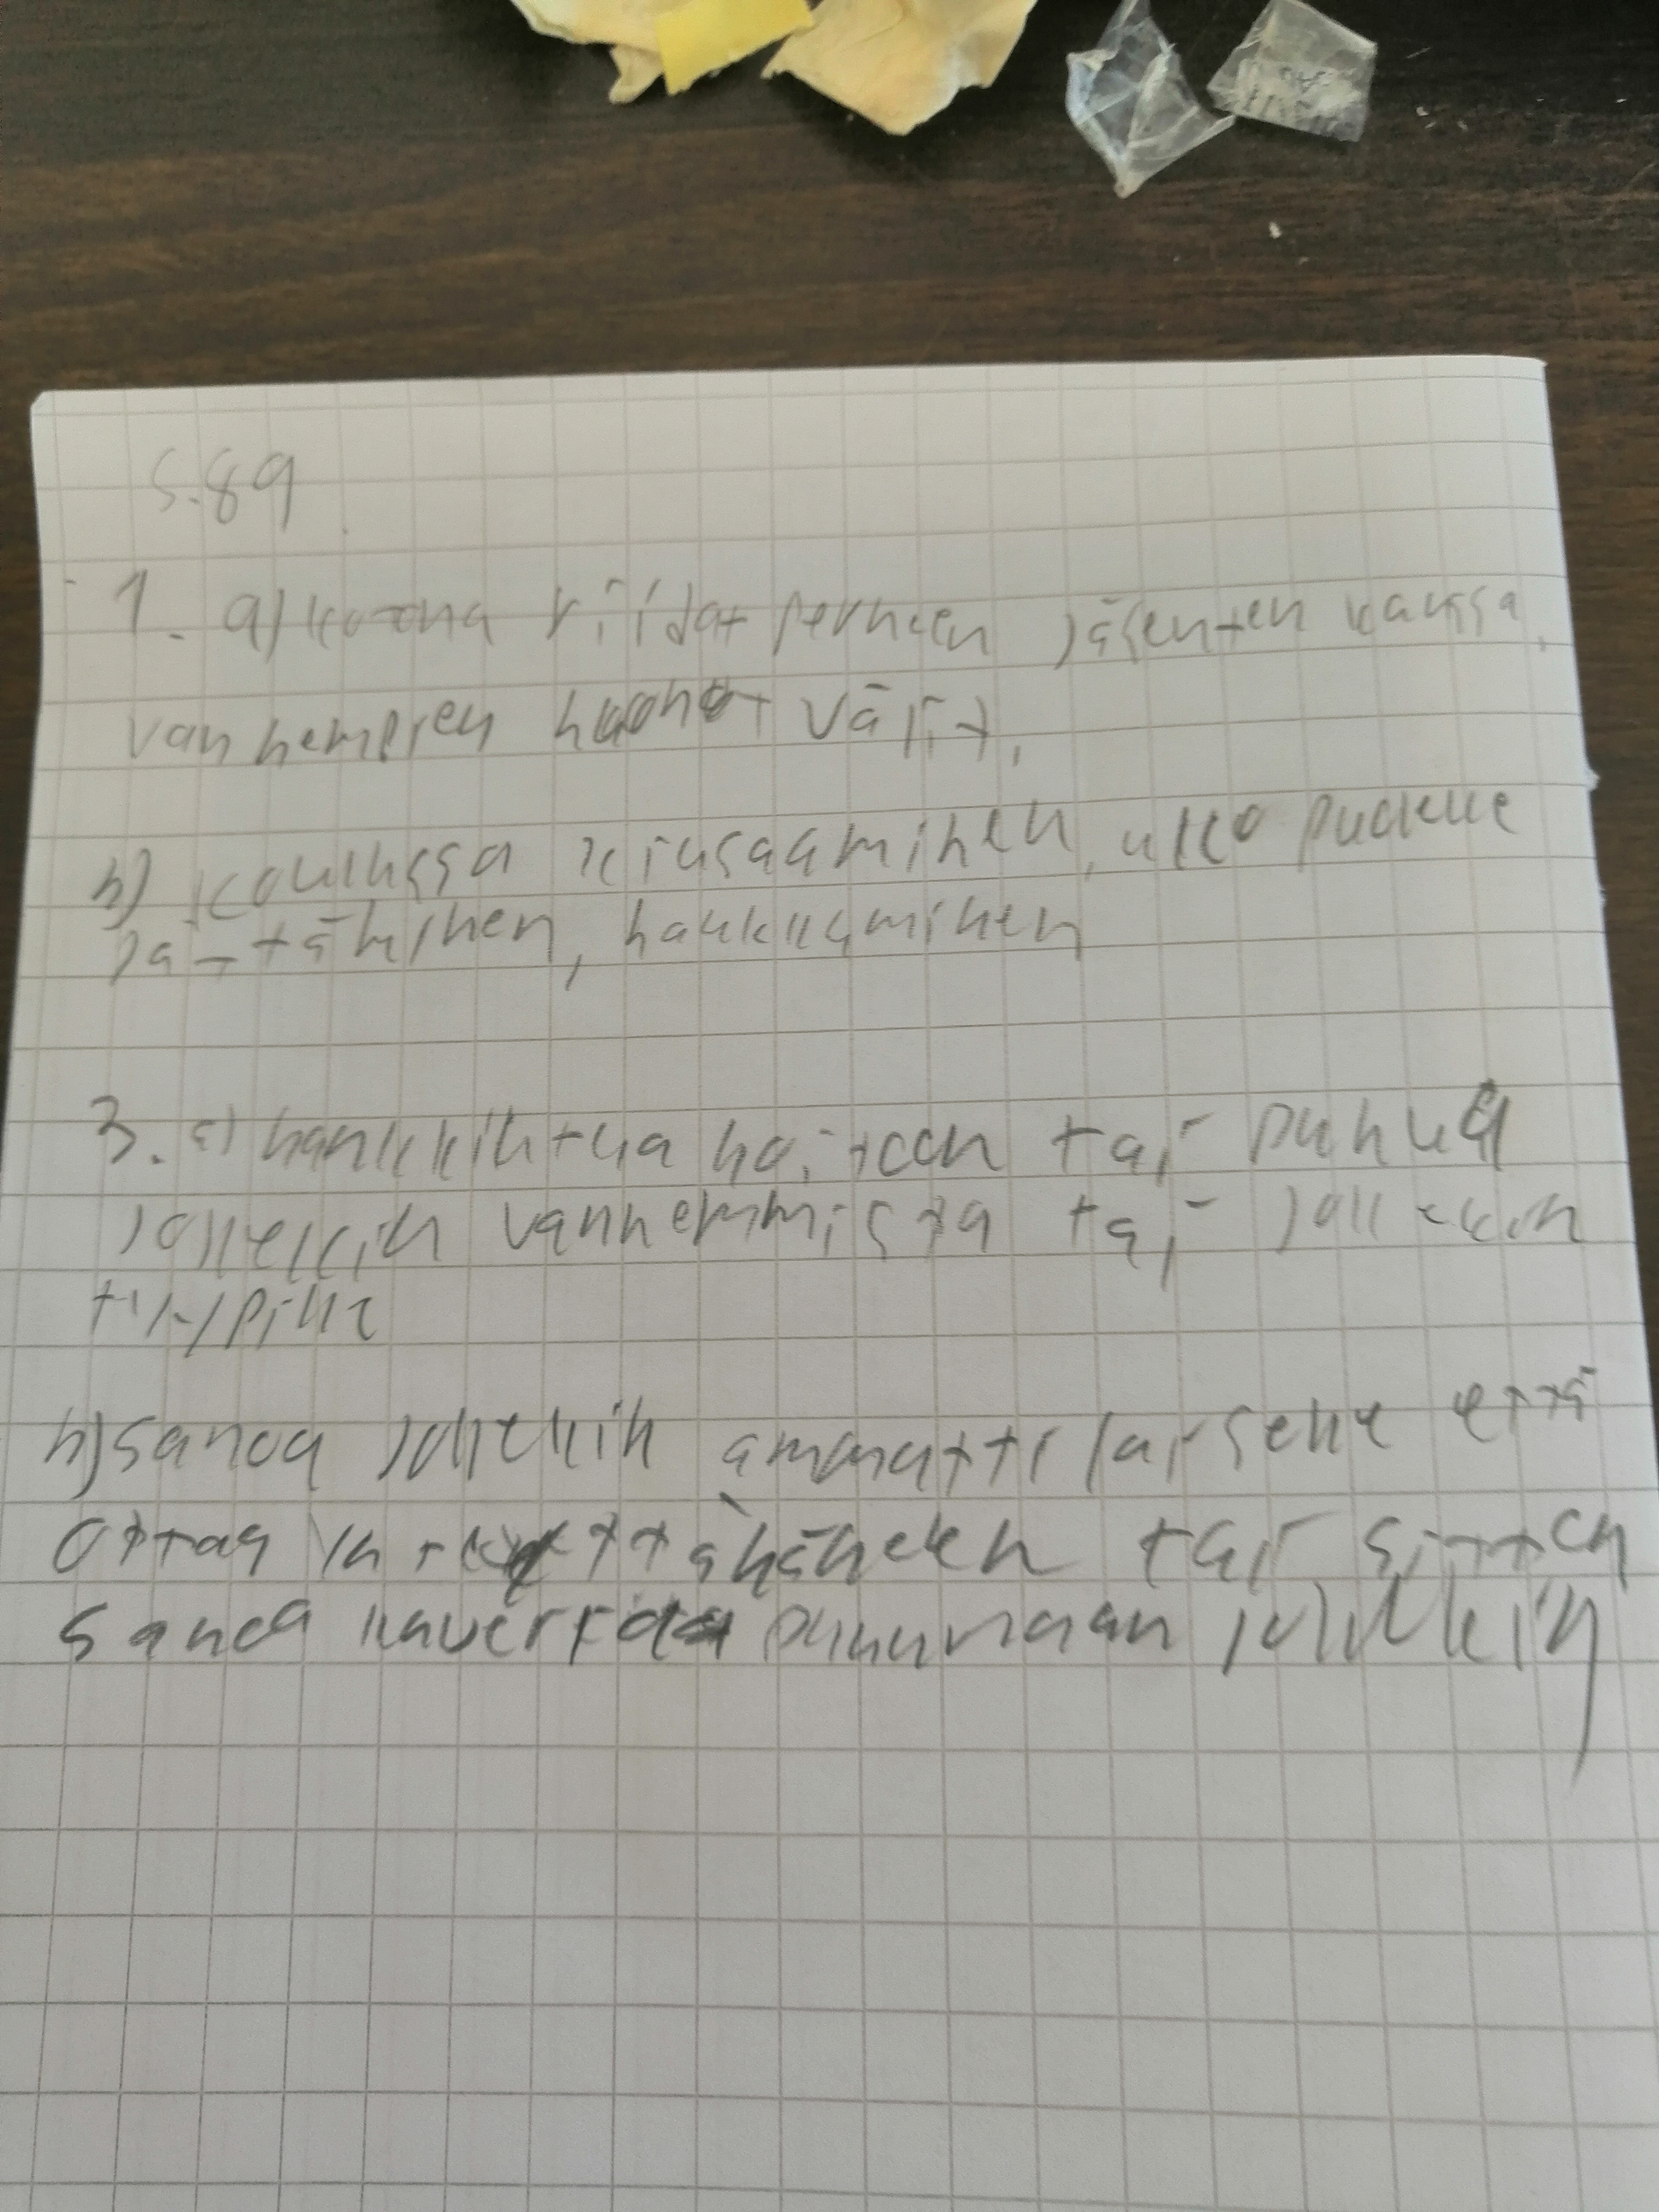 s.89
1. a) kotona riidat perheen jäsenten kanssa,
vanhempien huonot välit,
b) koulussa kiusaaminen, ulko puolelle
jättäminen, haukkuminen
3. a) hankkiutua hoitoon tai puhua
jollekkin vanhemmista tai jollekkin
b) sanoa jollekkin ammattilaiselle että
ottaa häneen tai sitten
sanoa puhumaan jollekkin